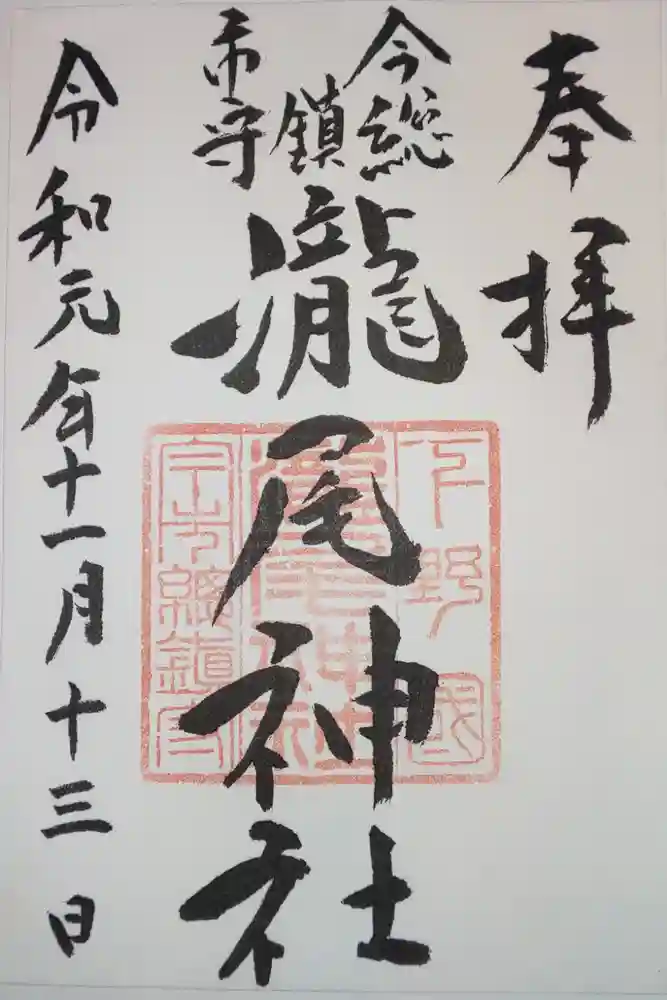 奉拝
今市
総鎮守
瀧尾神社
令和元年十一月十三日
下野國
瀧尾神社
今市總鎮守